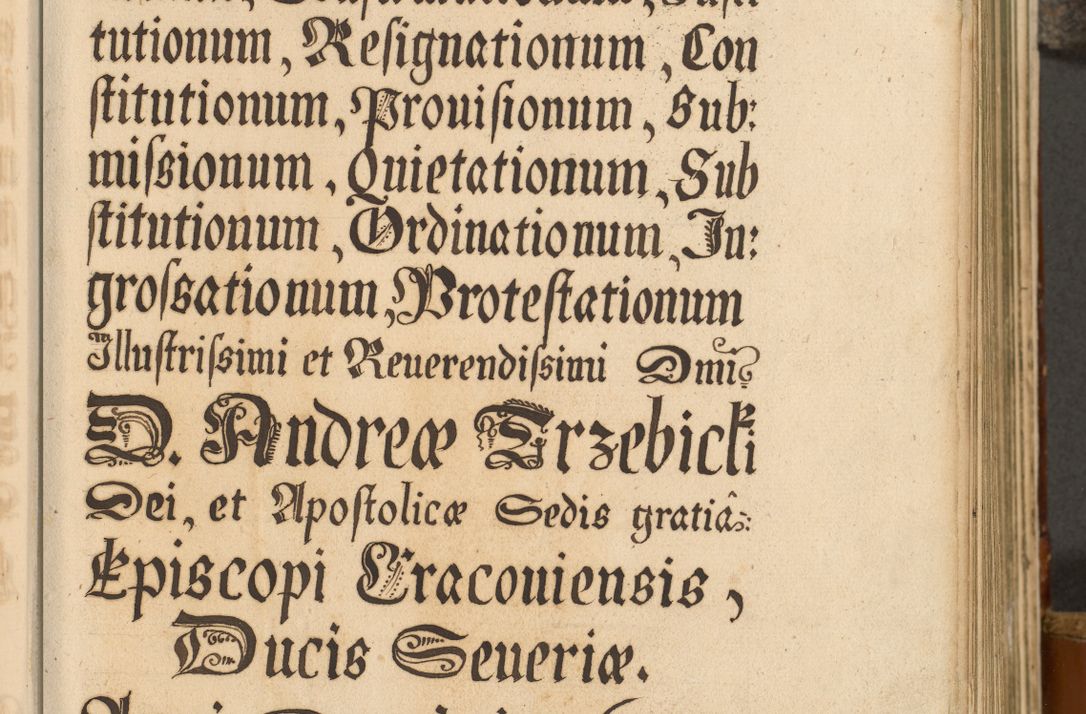 tutionum, Resignationum, Con
stitutionum, Prouisionum, Sub:
missionum, Quietationum, Sub
stitutionum, Ordinationum, In:
grossationum, Protestationum
Illustrissimi et Reuerendissimi Dmi
D. Andreæ Trzebicki
Dei, et Apostolicæ Sedis gratiâ:
Episcopi Cracouiensis,
Ducis Seueriæ.